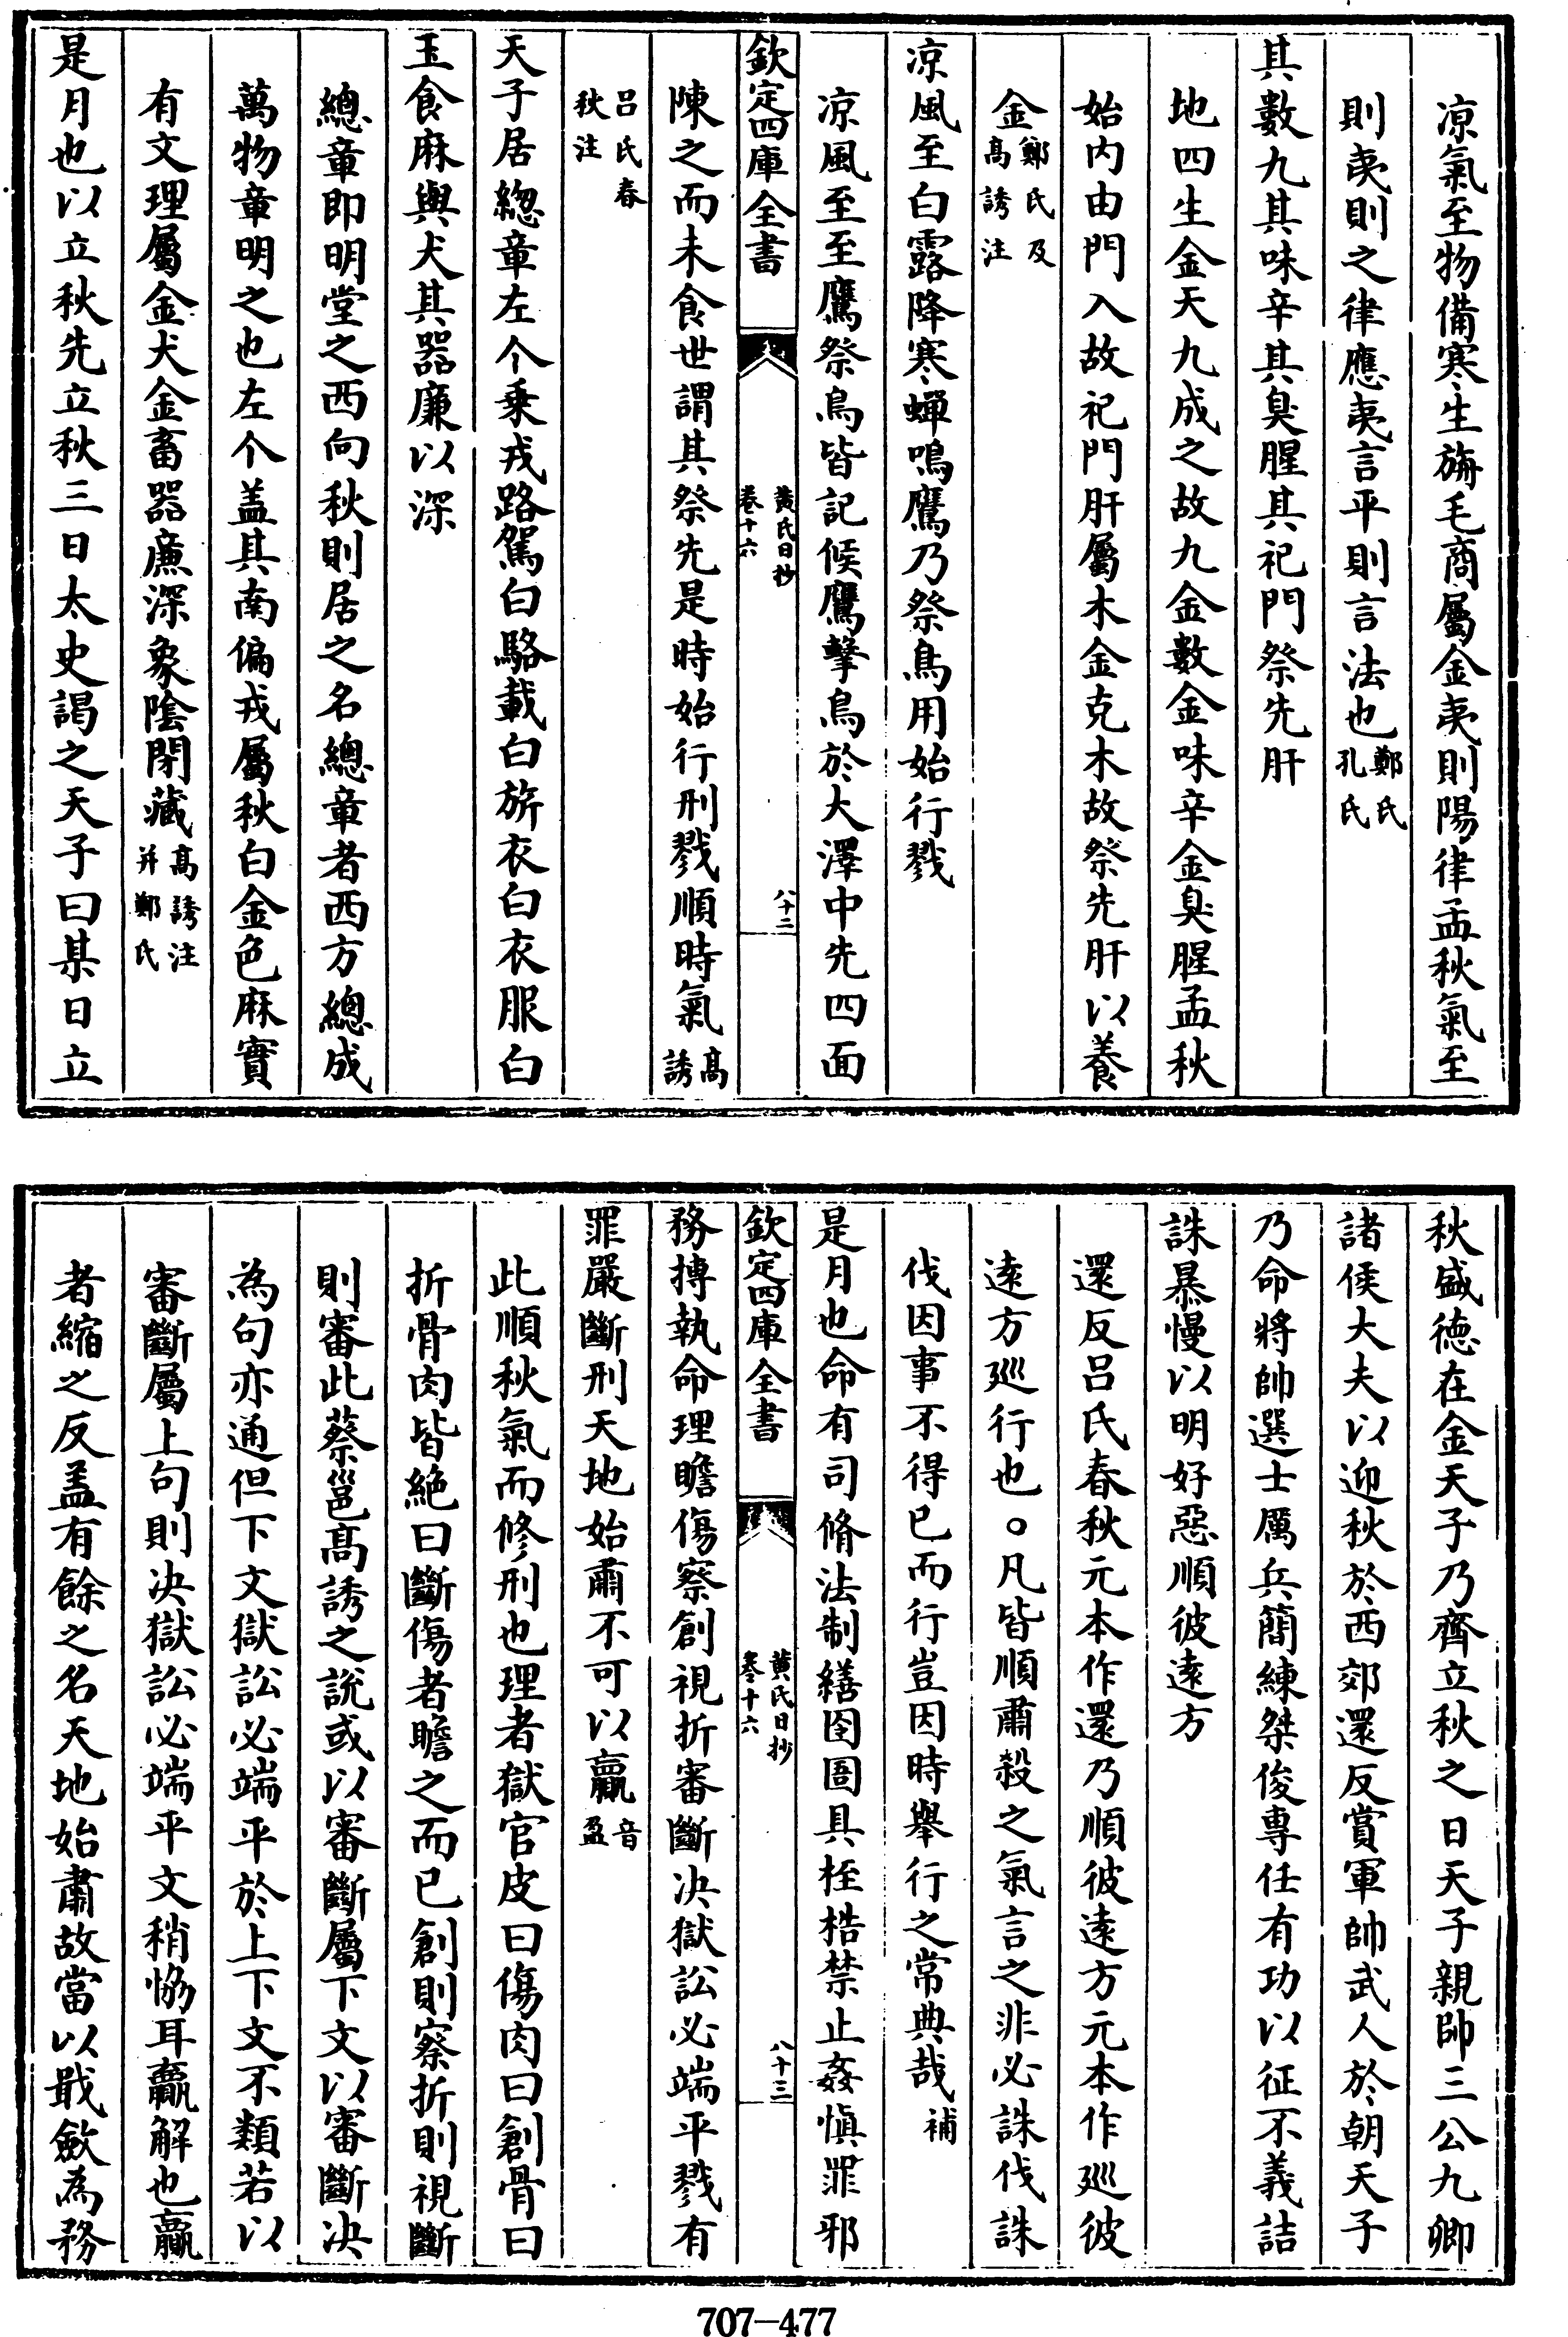 凉氣至物備寒生旃毛商屬金夷則陽律孟秋氣至
則夷則之律應夷言平則言法也鄭氏孔氏
其數九其味辛其臭腥其祀門祭先肝
地四生金天九成之故九金數金味辛金臭腥孟秋
始内由門入故祀門肝屬木金克木故祭先肝以養
金鄭氏及高誘注
凉風至白露降寒蟬鳴鷹乃祭鳥用始行戮
凉風至至鷹祭鳥皆記候鷹擊鳥於大澤中先四面
欽定四庫全書 黄氏日抄 卷十六 八十二
陳之而未食世謂其祭先是時始行刑戮順時氣高誘
吕氏春秋注
天子居緫章左个乗戎路駕白駱載白旂衣白衣服白
玉食麻與犬其器廉以深
總章即明堂之西向秋則居之名總章者西方總成
萬物章明之也左个盖其南偏戎屬秋白金色麻實
有文理屬金犬金畜器廉深象陰閉藏高誘注并鄭氏
是月也以立秋先立秋三日太史謁之天子曰某日立
秋盛徳在金天子乃齊立秋之日天子親帥三公九卿
諸侯大夫以迎秋於西郊還反賞軍帥武人於朝天子
乃命將帥選士厲兵簡練桀俊専任有功以征不義詰
誅暴慢以明好惡順彼逺方
還反吕氏春秋元本作還乃順彼逺方元本作巡彼
逺方巡行也○凡皆順肅殺之氣言之非必誅伐誅
伐因事不得已而行豈因時舉行之常典哉補
是月也命有司脩法制繕囹圄具桎梏禁止姦慎罪邪
欽定四庫全書 黄氏日抄 卷十六 八十三
務搏執命理瞻傷察創視折審斷决獄訟必端平戮有
罪嚴斷刑天地始肅不可以贏音盈
此順秋氣而修刑也理者獄官皮曰傷肉曰創骨曰
折骨肉皆絶曰斷傷者瞻之而已創則察折則視斷
則審此蔡邕髙誘之説或以審斷屬下文以審斷决
為句亦通但下文獄訟必端平於上下文不類若以
審斷屬上句則决獄訟必端平文稍恊耳贏解也贏
者縮之反盖有餘之名天地始肅故當以戢斂為務
707-477